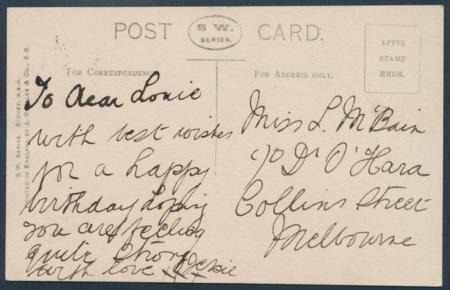 POST CARD.
S.W.
SERIES.
AFFIX
STAMP
HERE.
FOR CORRESPONDENCE
FOR ADDRESS ONLY.
To dear Lonie
with best wishes
for a happy
birthday hoping
you are feeling
quite strong
with love
Miss L. McBain
c/o Dr O'Hara
Collins Street
Melbourne
S.W. SERIES. SYDNEY, N.S.W.